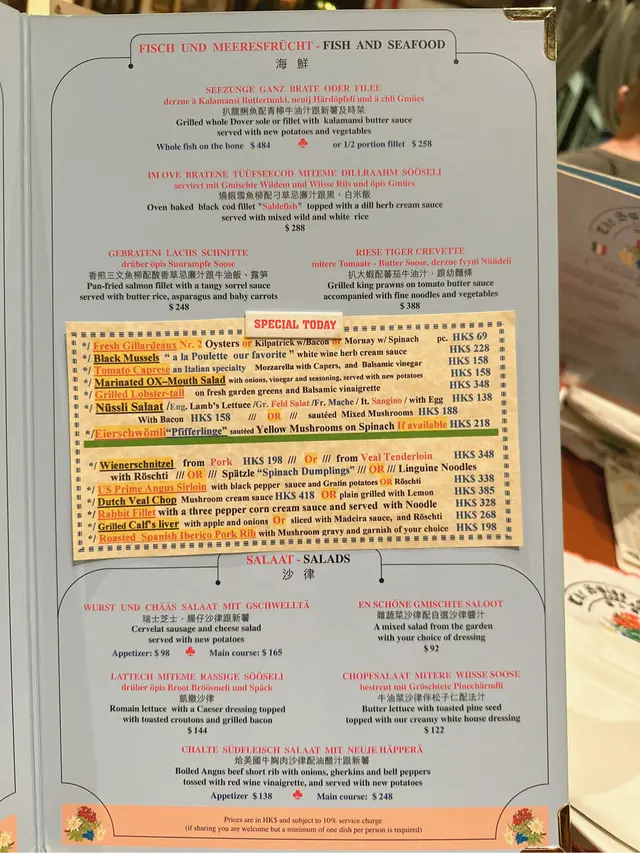 FISCH UND MEERESFRÜCHT - FISH AND SEAFOOD
海 鮮
SEEZUNGE GANZ BRATE ODER FILEE
derzne ä Kalamansi Buttertunki, neuij Härdöpfeli und ä chli Gmües
扒龍脷魚配青檸牛油汁跟新薯及時菜
Grilled whole Dover sole or fillet with kalamansi butter sauce
served with new potatoes and vegetables
Whole fish on the bone $ 484 or 1/2 portion fillet $ 258
IM OVE BRATENE TÜÜFSEECOD MITEME DILLRAAHM SÖÖSELI
serviert mit Gmischte Wildem und Wiisse Riis und öpis Gmües
燒銀雪魚柳配刁草忌廉汁跟黑、白米飯
Oven baked black cod fillet "Sablefish" topped with a dill herb cream sauce
served with mixed wild and white rice
$ 288
GEBRATENI LACHS SCHNITTE
drüber öpis Suurampfe Soose
香煎三文魚柳配酸香草忌廉汁跟牛油飯、露笋
Pan-fried salmon fillet with a tangy sorrel sauce
served with butter rice, asparagus and baby carrots
$ 248
RIESE TIGER CREVETTE
mitere Tomaate - Butter Soose, derzue fyyni Nüüdeli
扒大蝦配蕃茄牛油汁，跟幼麵條
Grilled king prawns on tomato butter sauce
accompanied with fine noodles and vegetables
$ 388
SPECIAL TODAY
*/ Fresh Gillardeaux Nr. 2 Oysters or Kilpatrick w/Bacon or Mornay w/ Spinach pc. HK$ 69
*/ Black Mussels " a la Poulette our favorite " white wine herb cream sauce HK$ 228
*/ Tomato Caprese an Italian specialty Mozzarella with Capers, and Balsamic vinegar HK$ 158
*/ Marinated OX–Mouth Salad with onions, vinegar and seasoning, served with new potatoes HK$ 158
*/ Grilled Lobster-tail on fresh garden greens and Balsamic vinaigrette HK$ 348
*/ Nüssli Salaat /Eng. Lamb's Lettuce /Gr. Feld Salat /Fr. Mache / It. Sangino / with Egg HK$ 138
With Bacon HK$ 158 /// OR /// sautéed Mixed Mushrooms HK$ 188
*/Eierschwömli"Pfifferlinge" sautéed Yellow Mushrooms on Spinach If available HK$ 218
*/ Wienerschnitzel from Pork HK$ 198 /// Or /// from Veal Tenderloin HK$ 348
with Röschti /// OR /// Spätzle "Spinach Dumplings" /// OR /// Linguine Noodles
*/ US Prime Angus Sirloin with black pepper sauce and Gratin potatoes OR Röschti HK$ 338
*/ Dutch Veal Chop Mushroom cream sauce HK$ 418 OR plain grilled with Lemon HK$ 385
*/ Rabbit Fillet with a three pepper corn cream sauce and served with Noodle HK$ 328
*/ Grilled Calf's liver with apple and onions Or sliced with Madeira sauce, and Röschti HK$ 268
*/ Roasted Spanish Iberico Pork Rib with Mushroom gravy and garnish of your choice HK$ 198
SALAAT - SALADS
沙 律
WURST UND CHÄÄS SALAAT MIT GSCHWELLTÄ
瑞士芝士，腸仔沙律跟新薯
Cervelat sausage and cheese salad
served with new potatoes
Appetizer: $ 98 Main course: $ 165
EN SCHÖNE GMISCHTE SALOOT
雜蔬菜沙律配自選沙律醬汁
A mixed salad from the garden
with your choice of dressing
$ 92
LATTECH MITEME RASSIGE SÖÖSELI
drüber öpis Broot Bröösmeli und Späck
凱撒沙律
Romain lettuce with a Caeser dressing topped
with toasted croutons and grilled bacon
$ 144
CHOPFSALAAT MITERE WIISSE SOOSE
bestreut mit Gröschtete Pinechärndli
牛油菜沙律伴松子仁配法汁
Butter lettuce with toasted pine seed
topped with our creamy white house dressing
$ 122
CHALTE SÜDFLEISCH SALAAT MIT NEUJE HÄPPERÄ
烚美國牛胸肉沙律配油醋汁跟新薯
Boiled Angus beef short rib with onions, gherkins and bell peppers
tossed with red wine vinaigrette, and served with new potatoes
Appetizer $ 138 Main course: $ 248
Prices are in HK$ and subject to 10% service charge
(if sharing you are welcome but a minimum of one dish per person is required)